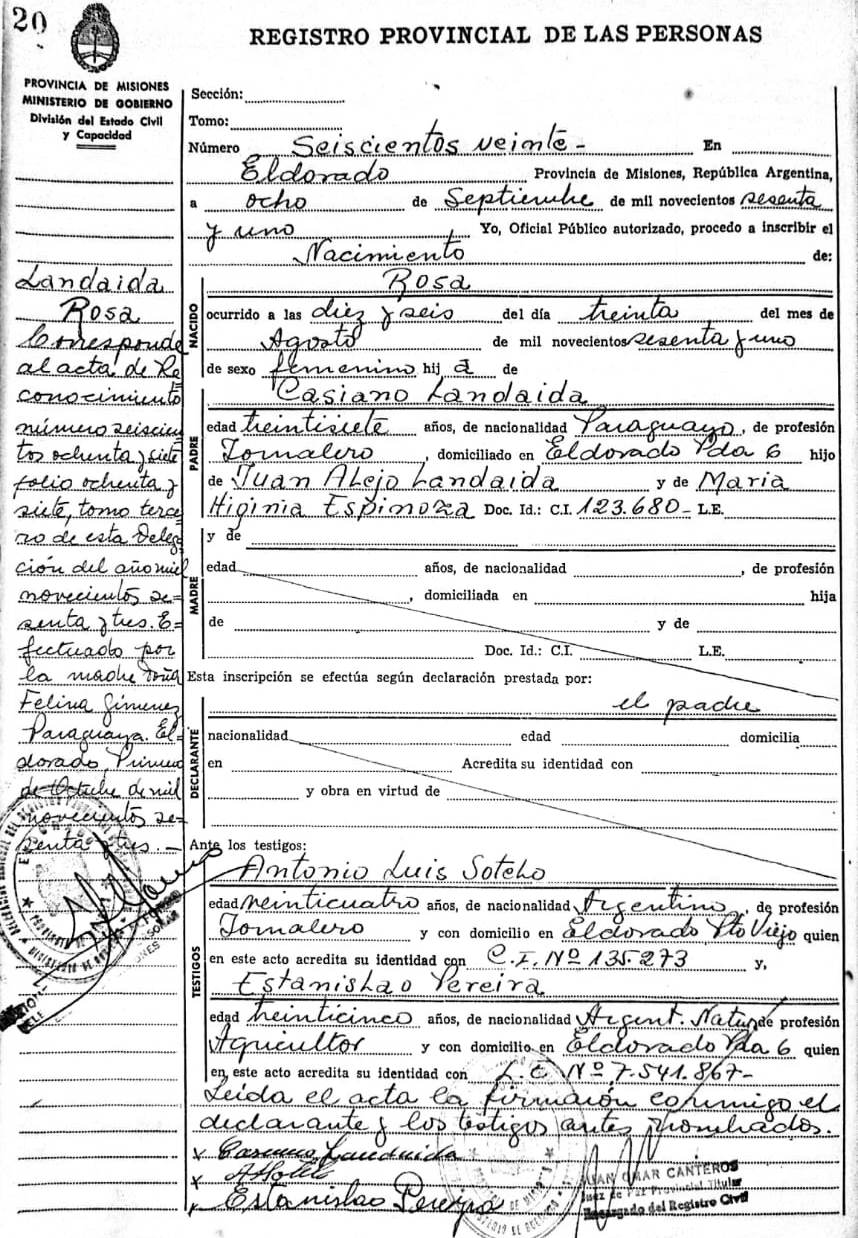 20
REGISTRO PROVINCIAL DE LAS PERSONAS
PROVINCIA DE MISIONES
MINISTERIO DE GOBIERNO
División del Estado Civil
y Capacidad
Sección:
Tomo:
Número Seiscientos veinte - En
Eldorado Provincia de Misiones, República Argentina,
a ocho de Septiembre de mil novecientos sesenta
y uno Yo, Oficial Público autorizado, procedo a inscribir el
Nacimiento de:
Landaida
Rosa
Corresponde
al acta de Re
conocimiento
número seiscien
tos ochenta y siete
folio ochenta y
siete, tomo terce
ro de esta Delega
ción del año mil
novecientos se=
senta y tres. E=
fectuado por
la madre doña
Felina Gimenez
Paraguaya. El=
dorado, Primero
de Octubre de mil
novecientos se=
senta y tres. -
NACIDO
Rosa
ocurrido a las diez y seis del día treinta del mes de
Agosto de mil novecientos sesenta y uno
de sexo femenino hij a de
PADRE
Casiano Landaida
edad treintisiete años, de nacionalidad Paraguayo, de profesión
Jornalero, domiciliado en Eldorado Pda 6 hijo
de Juan Alejo Landaida y de Maria
Higinia Espinoza Doc. Id.: C.I. 123.680- L.E.
MADRE
y de
edad años, de nacionalidad , de profesión
, domiciliada en hija
de y de
Doc. Id.: C.I. L.E.
Esta inscripción se efectúa según declaración prestada por:
DECLARANTE
el padre
nacionalidad edad domicilia
en Acredita su identidad con
y obra en virtud de
Ante los testigos:
TESTIGOS
Antonio Luis Sotelo
edad veinticuatro años, de nacionalidad Argentino, de profesión
Jornalero y con domicilio en Eldorado Pto Viejo quien
en este acto acredita su identidad con C.I. Nº 135.273 y,
Estanislao Pereira
edad treinticinco años, de nacionalidad Argent. Natur. de profesión
Agricultor y con domicilio en Eldorado Pda 6 quien
en este acto acredita su identidad con L.E Nº 7.541.867-
Leida el acta la firmaron conmigo el
declarante y los testigos antes nombrados.
x Casiano Landaida
x
x Estanislao Pereyra
JUAN OMAR CANTEROS
Juez de Paz Provincial Titular
Encargado del Registro Civil